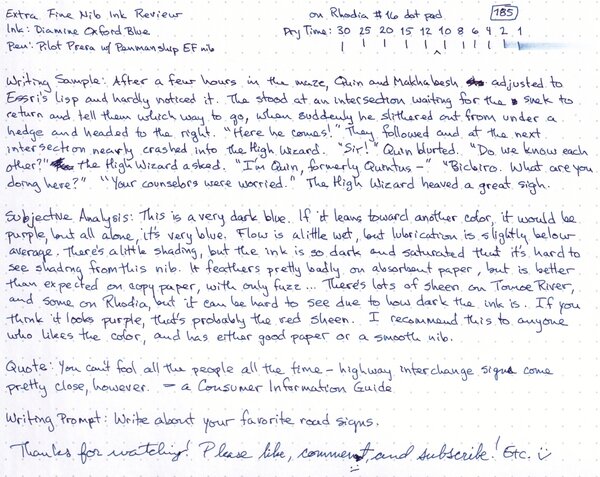 Extra Fine Nib Ink Review on Rhodia #16 dot pad 185
Ink: Diamine Oxford Blue Dry Time: 30 25 20 15 12 10 8 6 4 2 1
Pen: Pilot Prera w/ Penmanship EF nib
Writing Sample: After a few hours in the maze, Quin and Makhabesh adjusted to
Essri's lisp and hardly noticed it. The stood at an intersection waiting for the snek to
return and tell them which way to go, when suddenly he slithered out from under a
hedge and headed to the right. "Here he comes!" They followed and at the next
intersection nearly crashed into the High Wizard. "Sir!" Quin blurted. "Do we know each
other?" the High Wizard asked. "I'm Quin, formerly Quintus –" "Bicbiro. What are you
doing here?" "Your counselors were worried." The High Wizard heaved a great sigh.
Subjective Analysis: This is a very dark blue. If it leans toward another color, it would be
purple, but all alone, it's very blue. Flow is a little wet, but lubrication is slightly below
average. There's a little shading, but the ink is so dark and saturated that it's hard to
see shading from this nib. It feathers pretty badly on absorbent paper, but is better
than expected on copy paper, with only fuzz... There's lots of sheen on Tomoe River,
and some on Rhodia, but it can be hard to see due to how dark the ink is. If you
think it looks purple, that's probably the red sheen. I recommend this to anyone
who likes the color, and has either good paper or a smooth nib.
Quote: You can't fool all the people all the time – highway interchange signs come
pretty close, however. — a Consumer Information Guide
Writing Prompt: Write about your favorite road signs.
Thanks for watching! Please like, comment, and subscribe! Etc. :)